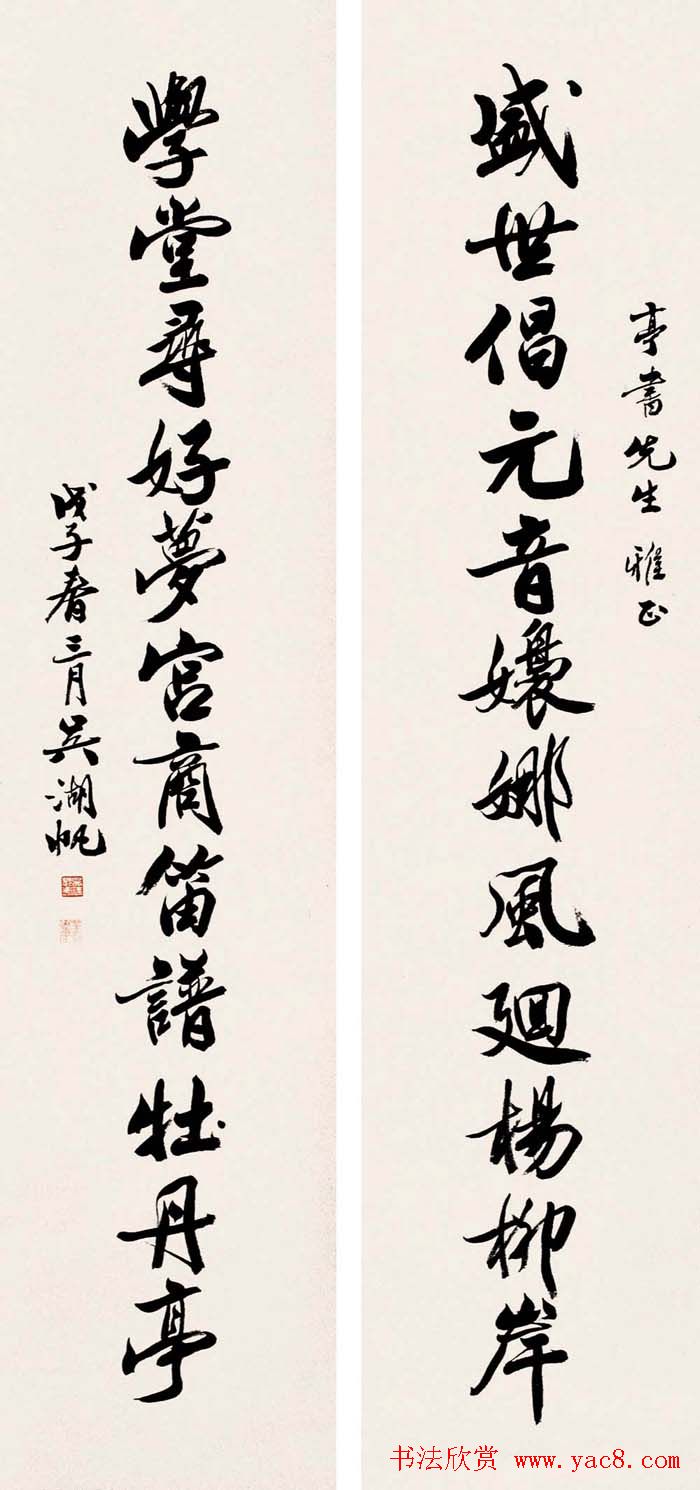 亭書先生雅正
盛世倡元音嬝娜風廻楊柳岸
學堂尋好夢宮商笛譜牡丹亭
戊子春三月吳湖帆
书法欣赏 www.yac8.com